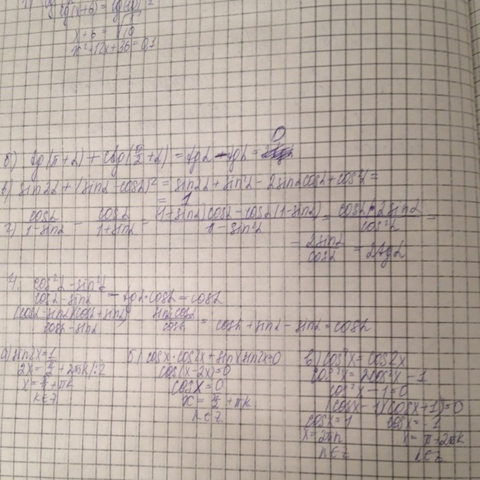 x+6 =
x²+12x+36=0,1
б) tg(π+α)+ctg(π/2+α)=tgα-tgα= 0
в) sin2α+(sinα-cosα)²=sin2α+sin²α-2sinαcosα+cos²α=
= 1
г) cosα/(1-sinα) - cosα/(1+sinα) = ((1+sinα)cosα-cosα(1-sinα))/(1-sin²α) = cosα·2sinα/cos²α =
= 2sinα/cosα = 2tgα
4. (cos²α-sin²α)/(cosα-sinα) - tgα·cosα=cosα
(cosα-sinα)(cosα+sinα)/(cosα-sinα) - sinα·cosα/cosα = cosα+sinα-sinα=cosα
а) sin2x=1
2x=π/2+2πk/:2
x=π/4+πk
k∈z
б) cosx·cos2x+sinx·sin2x=0
cos(x-2x)=0
cosx=0
x=π/2+πk
k∈z
в) cos²x=cos2x
cos²x=2cos²x-1
cos²x-1=0
(cosx-1)(cosx+1)=0
cosx=1 cosx=-1
x=2πk x=π+2πk
k∈z k∈z